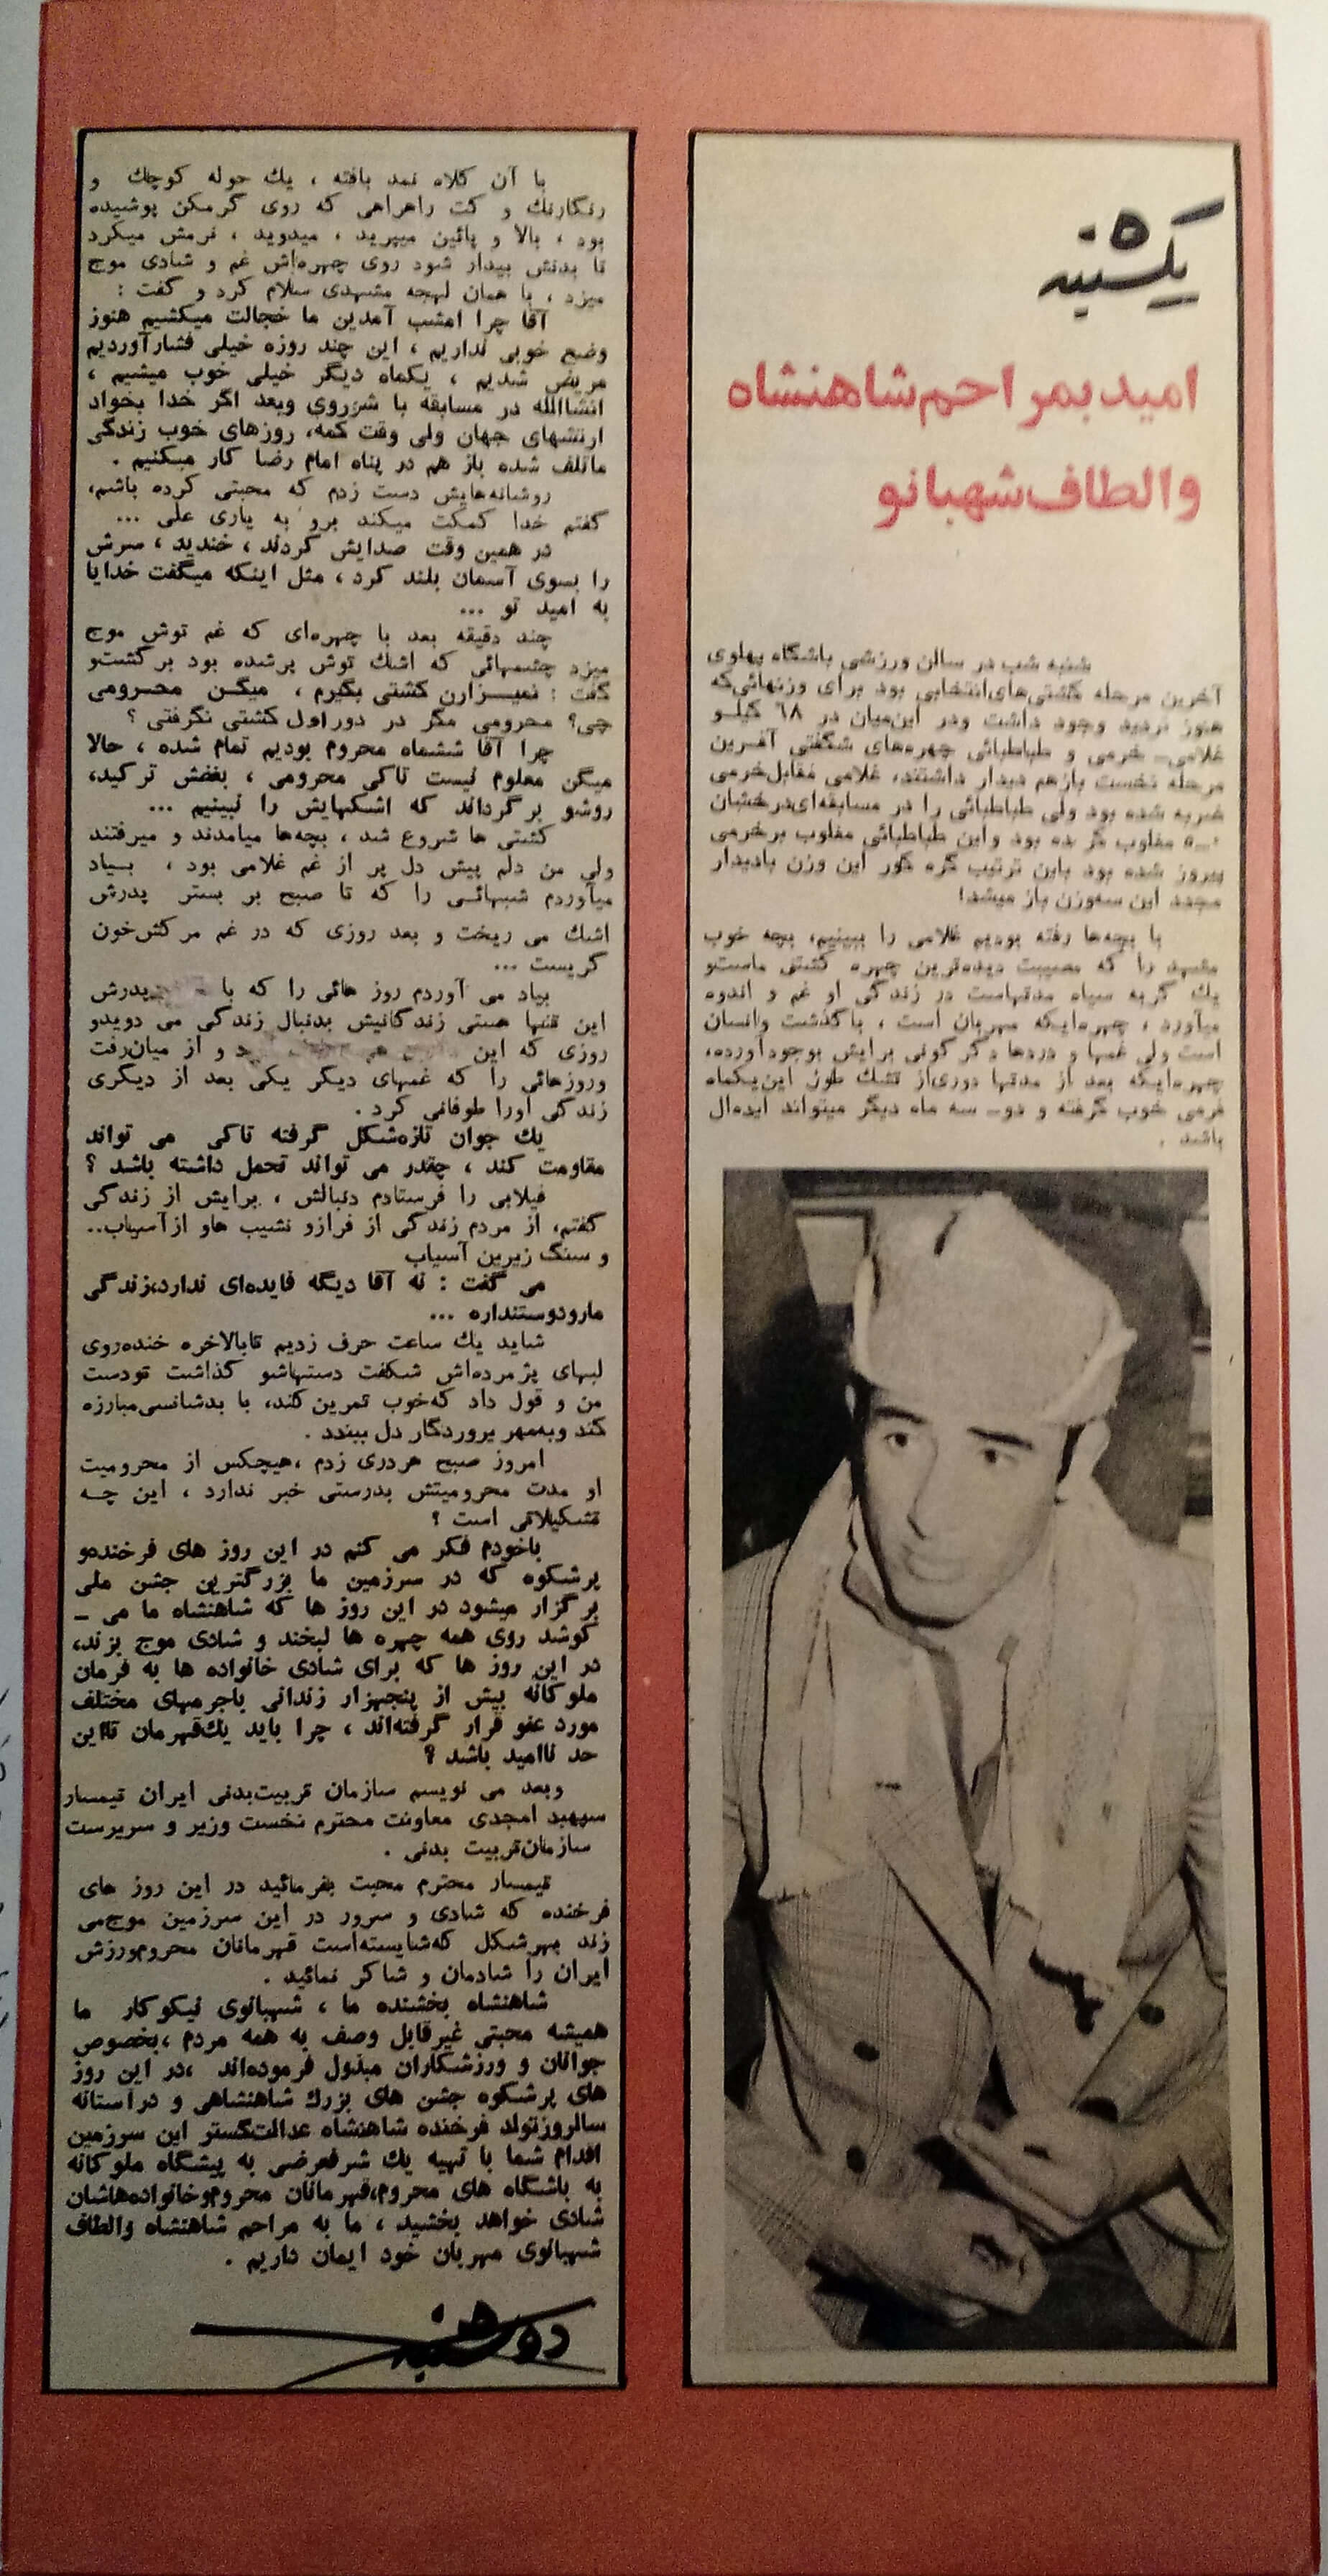 یکشنبه
امید بمراحم شاهنشاه
والطاف شهبانو
شنبه شب در سالن ورزشی باشگاه پهلوی
آخرین مرحله کشتی‌های انتخابی بود برای وزنهائی‌که
هنوز تردید وجود داشت ودر این‌میان در ۶۸ کیلو
غلامی‌ــ خرمی و طباطبائی چهره‌های شگفتی آفرین
مرحله نخست بازهم دیدار داشتند، غلامی مقابل‌خرمی
ضربه شده بود ولی طباطبائی را در مسابقه‌ای‌درخشان
مغلوب کرده بود واین طباطبائی مغلوب برخرمی
پیروز شده بود باین ترتیب گره کور این وزن بادیدار
مجدد این سه‌وزن باز میشد!
با بچه‌ها رفته بودیم غلامی را ببینیم، بچه خوب
مشهد را که مصیبت دیده‌ترین چهره کشتی ماست‌و
یك گربه سیاه مدتهاست در زندگی او غم و اندوه
میآورد ، چهره‌ایکه مهربان است ، باگذشت وانسان
است ولی غمها و دردها دگرگونی برایش بوجودآورده،
چهره‌ایکه بعد از مدتها دوری‌از تشك طول این‌یکماه
فرمی خوب گرفته و دوــ سه ماه دیگر میتواند ایده‌ال
باشد .
با آن کلاه نمد بافته ، یك حوله کوچك و
رنگارنك و کت راهراهی که روی گرمکن پوشیده
بود ، بالا و پائین میپرید ، میدوید ، نرمش میکرد
تا بدنش بیدار شود روی چهره‌اش غم و شادی موج
میزد ، با همان لهجه مشهدی سلام کرد و گفت :
آقا چرا امشب آمدین ما خجالت میکشیم هنوز
وضع خوبی نداریم ، این چند روزه خیلی فشارآوردیم
مریض شدیم ، یکماه دیگر خیلی خوب میشیم ،
انشاالله در مسابقه با شوروی وبعد اگر خدا بخواد
ارتشهای جهان ولی وقت کمه، روزهای خوب زندگی
ماتلف شده باز هم در پناه امام رضا کار میکنیم .
روشانه‌هایش دست زدم که محبتی کرده باشم،
گفتم خدا کمکت میکند برو به یاری علی ...
در همین وقت صدایش کردند ، خندید ، سرش
را بسوی آسمان بلند کرد ، مثل اینکه میگفت خدایا
به امید تو ...
چند دقیقه بعد با چهره‌ای که غم توش موج
میزد چشمهائی که اشك توش پرشده بود برگشت‌و
گفت : نمیــزارن کشتی بگیرم ، میگــن محــرومی
چی؟ محرومی مگر در دور اول کشتی نگرفتی ؟
چرا آقا ششماه محروم بودیم تمام شده ، حالا
میگن معلوم نیست تاکی محرومی ، بغضش ترکید،
روشو برگرداند که اشکهایش را نبینیم ...
کشتی ها شروع شد ، بچه‌ها میامدند و میرفتند
ولی من دلم پیش دل پر از غم غلامی بود ، بــیاد
میآوردم شبهائــی را که تا صبح بر بستر پدرش
اشك می ریخت و بعد روزی که در غم مرگش‌خون
گریست ...
بیاد می آوردم روز هائی را که با پدرش
این تنها هستی زندگانیش بدنبال زندگی می دویدو
روزی که این و از میان‌رفت
وروزهائی را که غمهای دیگر یکی بعد از دیگری
زندگی اورا طوفانی کرد .
یك جوان تازه‌شکل گرفته تاکی می تواند
مقاومت کند ، چقدر می تواند تحمل داشته باشد ؟
فیلابی را فرستادم دنبالش ، برایش از زندگی
گفتم، از مردم زندگی از فرازو نشیب هاو ازآسیاب..
و سنگ زیرین آسیاب
می گفت : نه آقا دیگه فایده‌ای ندارد،زندگی
مارودوستنداره ...
شاید یك ساعت حرف زدیم تابالاخره خنده‌روی
لبهای پژمرده‌اش شکفت دستهاشو گذاشت تودست
من و قول داد که‌خوب تمرین کند، با بدشانسی‌مبارزه
کند وبه‌مهر پروردگار دل ببندد .
امروز صبح هردری زدم ،هیچکس از محرومیت
او مدت محرومیتش بدرستی خبر ندارد ، این چــه
تشکیلاتی است ؟
باخودم فکر می کنم در این روز های فرخنده‌و
پرشکوه که در سرزمین ما بزرگترین جشن ملی
برگزار میشود در این روز ها که شاهنشاه ما می ــ
کوشد روی همه چهره ها لبخند و شادی موج بزند،
در این روز ها که برای شادی خانواده ها به فرمان
ملوکانه بیش از پنجهزار زندانی باجرمهای مختلف
مورد عفو قرار گرفته‌اند ، چرا باید یك‌قهرمان تااین
حد ناامید باشد ؟
وبعد می نویسم سازمان تربیت‌بدنی ایران تیمسار
سپهبد امجدی معاونت محترم نخست وزیر و سرپرست
سازمان‌تربیت بدنی .
تیمسار محترم محبت بفرمائید در این روز های
فرخنده که شادی و سرور در این سرزمین موج‌می
زند بهرشکل که‌شایسته‌است قهرمانان محروم‌ورزش
ایران را شادمان و شاکر نمائید .
شاهنشاه بخشنده ما ، شهبانوی نیکوکار ما
همیشه محبتی غیرقابل وصف به همه مردم ،بخصوص
جوانان و ورزشکاران مبذول فرموده‌اند ،در این روز
های پرشکوه جشن های بزرك شاهنشاهی و درآستانه
سالروزتولد فرخنده شاهنشاه عدالت‌گستر این سرزمین
اقدام شما با تهیه یك شرفعرضی به پیشگاه ملوکانه
به باشگاه های محروم،قهرمانان محروم‌وخانواده‌هاشان
شادی خواهد بخشید ، ما به مراحم شاهنشاه والطاف
شهبانوی مهربان خود ایمان داریم .
دوشنبه